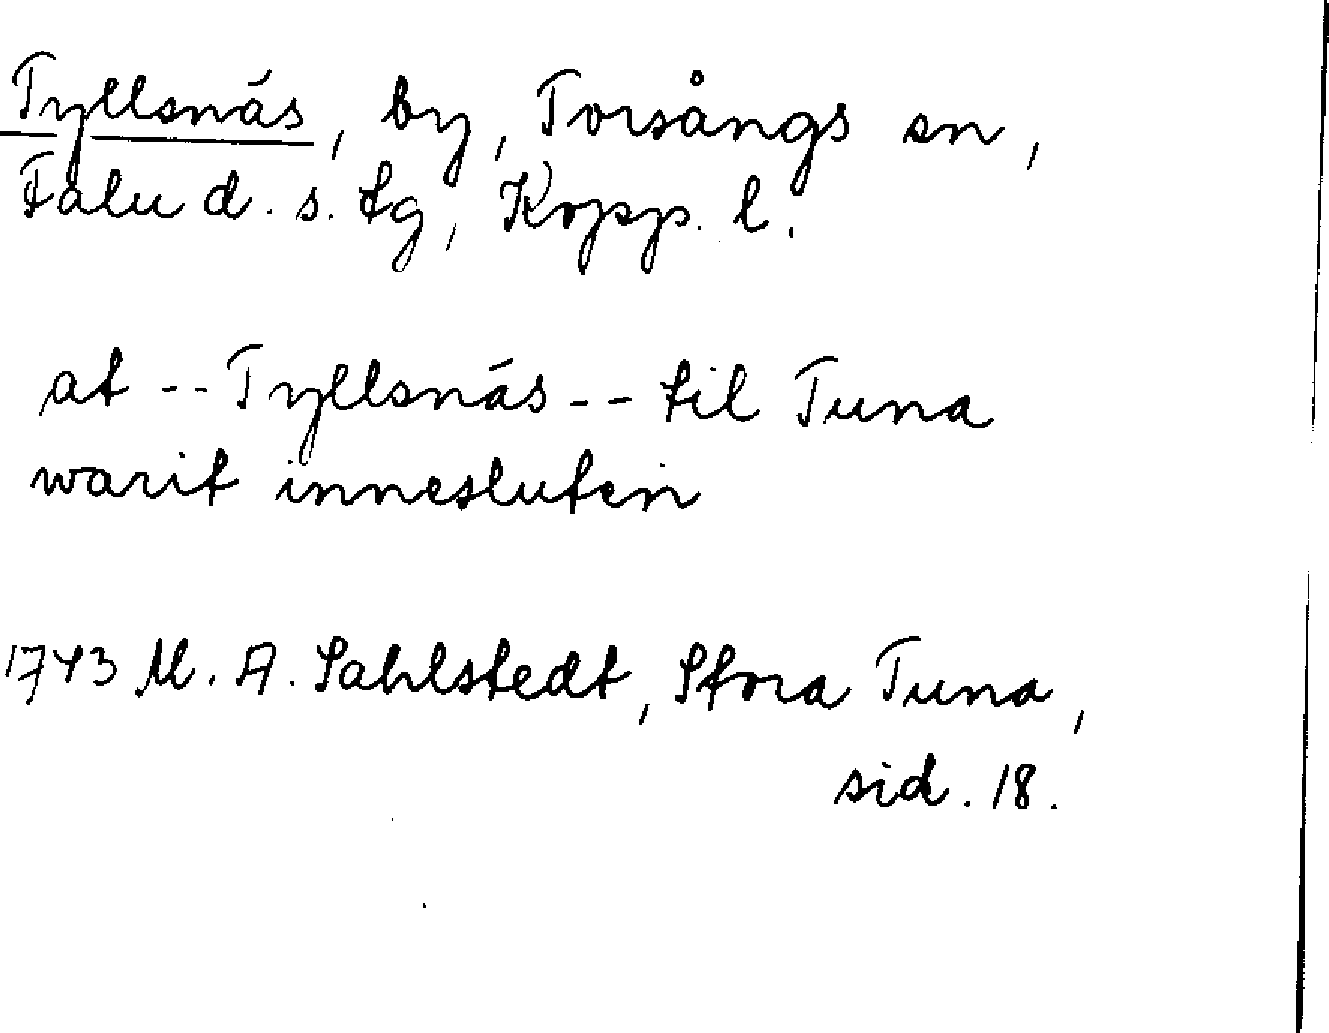 Tyllsnäs, by, Torsångs sn,
Falu d. s. tg, Kopp. l.
at -- Tyllsnäs -- til Tuna
warit innesluten
1743 M. A. Sahlstedt, Stora Tuna,
sid. 18.